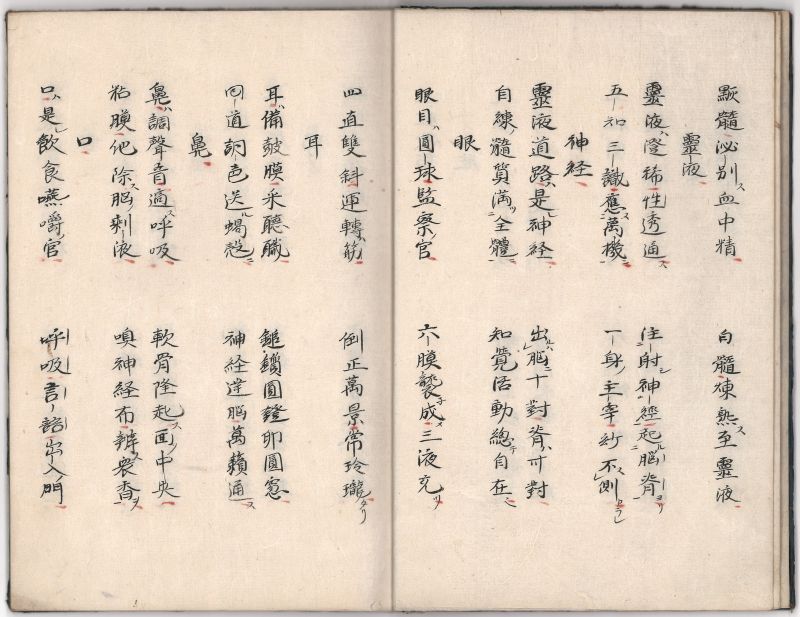 顆髓泌別血中精 白髓煉熟至靈液
靈液
靈液澄稀性透通 注射神經起脳脊
五知三識應萬機 一身主宰妙不測
神経
靈液道路是神経 出脳十對脊卅對
自練髓質満全體 知覚活動總自在
眼
眼目圓球監察官 六膜襲成三液充
四直雙斜運轉筋 倒正萬景常玲瓏
耳
耳備皷膜采聽職 鎚鑕圓鐙卵圓窓
回道調色送蝸殻 神経達脳萬籟通
鼻
鼻調聲音適呼吸 軟骨隆起面中央
粘膜他除脳剰液 嗅神経布辨衆香
口
口是飲食嚥嚼官 呼吸言語出入門